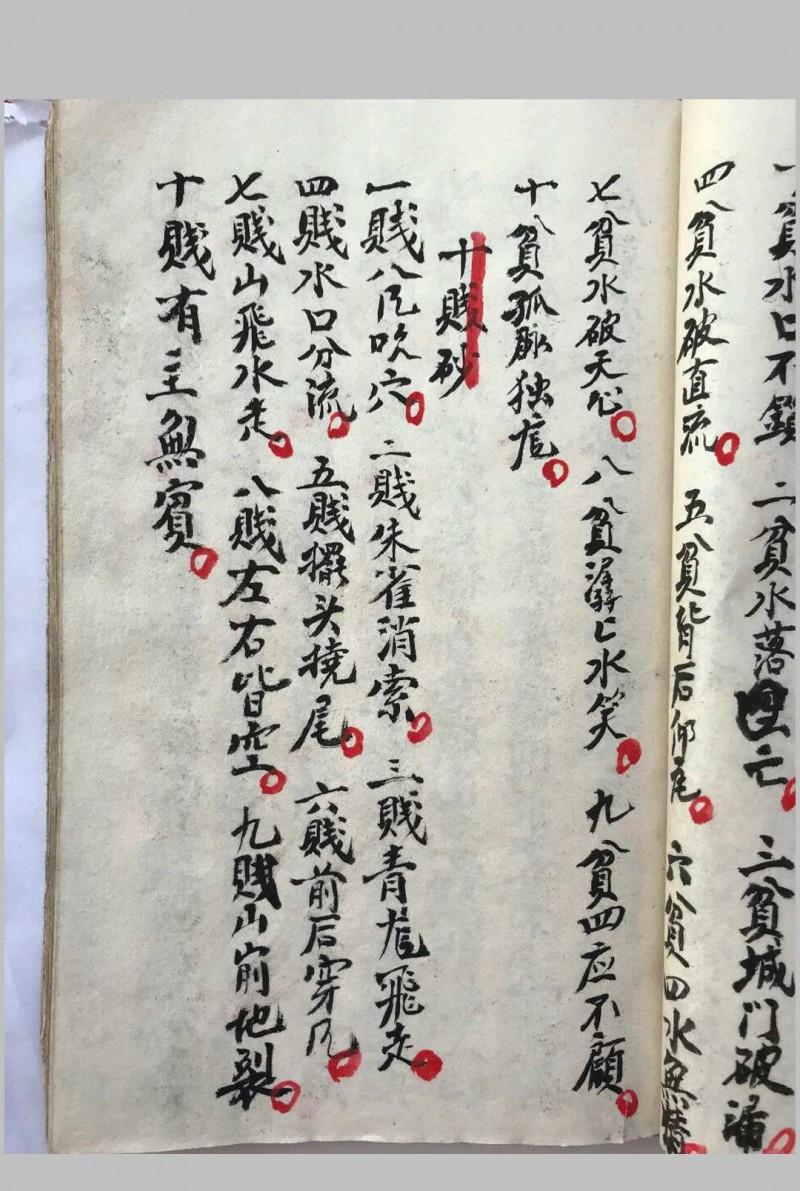 一貧水口不鎖 二貧水落 亡 三貧城门破漏
四貧水破直流 五貧背后仰尾 六貧四水無情
七貧水破天心 八貧潺ヒ水笑 九貧四应不顧
十貧孤脉独龙
十賤砂
一賤八风吹穴 二賤朱雀消索 三賤青龙飛走
四賤水口分流 五賤擺头撓尾 六賤前后穿风
七賤山飛水走 八賤左右皆空 九賤山崩地裂
十賤有主無賓